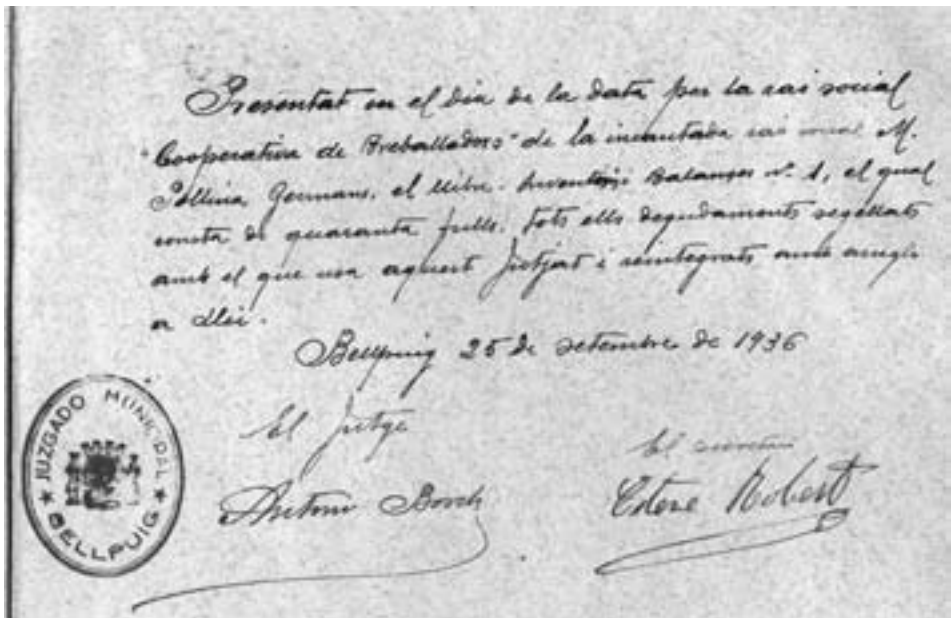 Presentat en el dia de la data per la raó social
"Cooperativa de Treballadors" de la incautada raó social M.
Pollina Germans, el llibre - Inventaris Balanços nº 1, el qual
consta de quaranta fulls, tots ells degudament segellats
amb el que usa aquest Jutjat i reintegrats amb arreglo
a llei.
Bellpuig 25 de setembre de 1936
El Jutge
El secretari
Antoni Bosch
Esteve Robert
JUZGADO MUNICIPAL
★ BELLPUIG ★